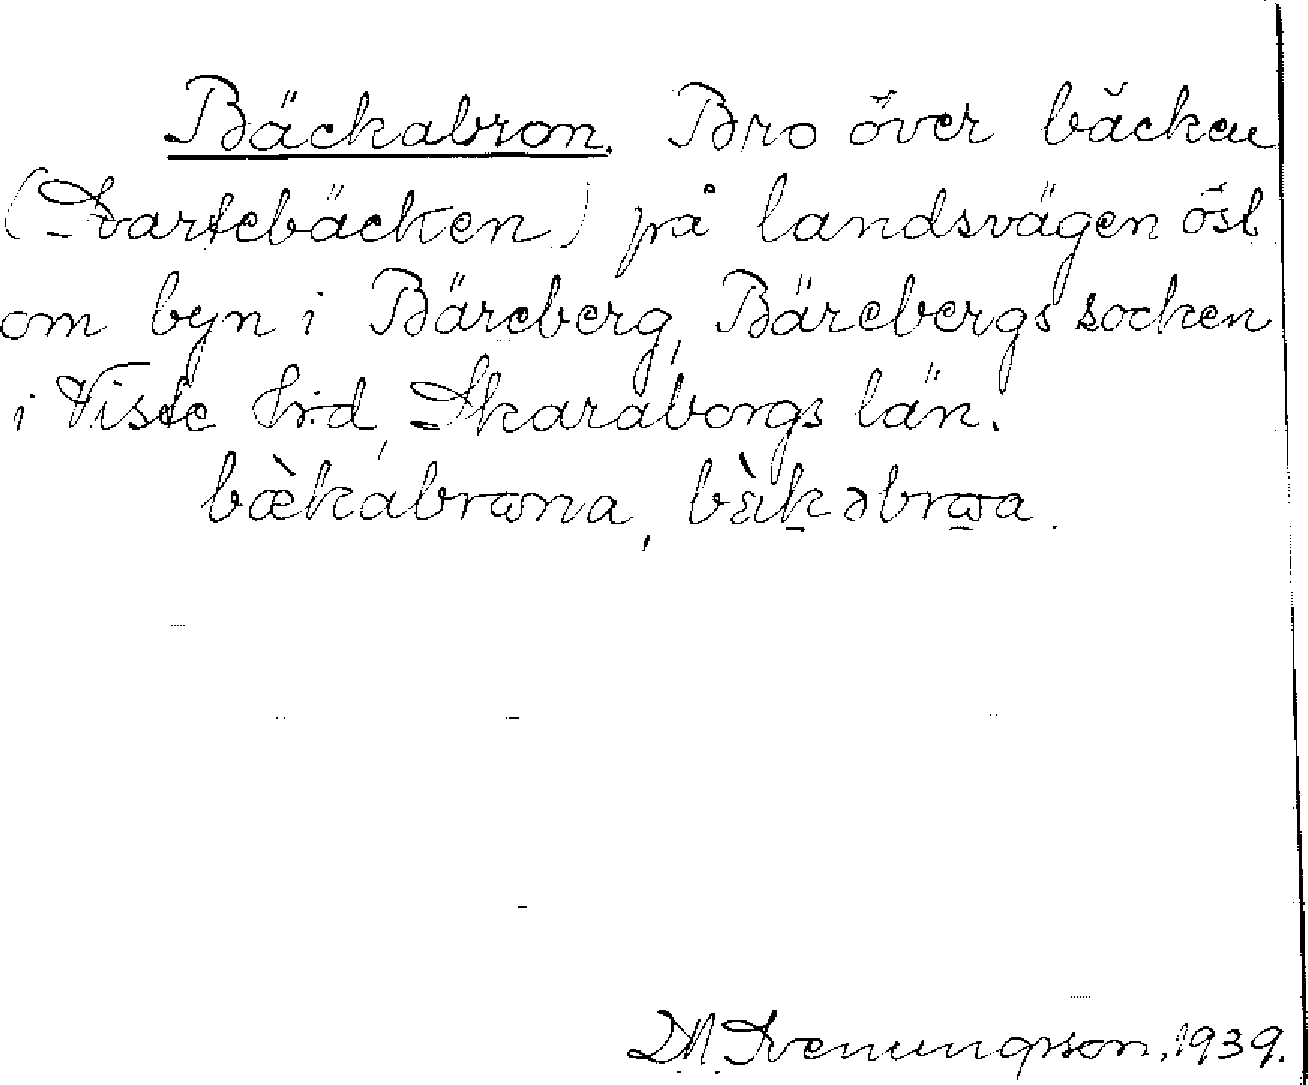 Bäckabron. Bro över bäcken
(Svartebäcken) på landsvägen öst
om byn i Bäreberg, Bärebergs socken
i Viste hrd, Skaraborgs län.
bæ̀kabrɷna, bæ̀k̠əbrɷ̠a.
D.M. Svenungsson, 1939.